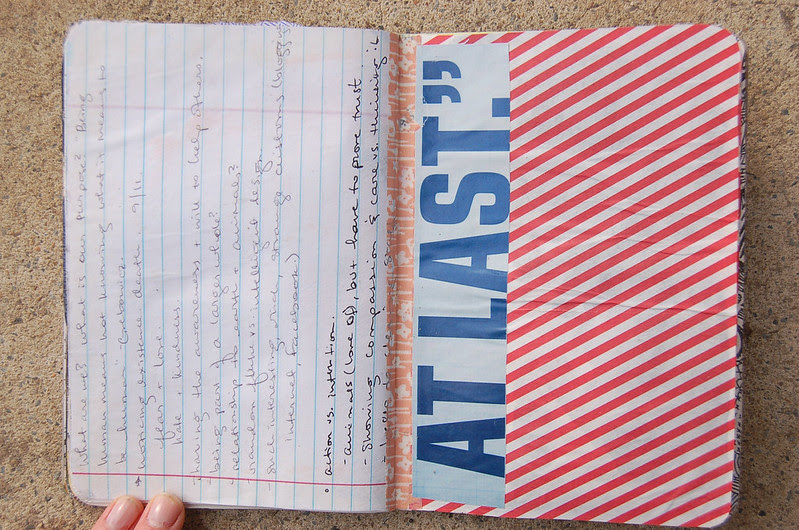 What are we? What is our purpose? Being
Human means not knowing what it means to
be human
existence death 9/11
fear + love.
Hate, kindness
- having the awareness + will to help others.
- being part of a larger whole?
- relationship to earth + animals?
- random vs. intelligent design
- Such interesting and strange customs (blogging
internet, Facebook.)
° action vs. intention.
- animals (love of), but have to prove trust
- Showing compassion & care vs. thinking it
AT LAST.”